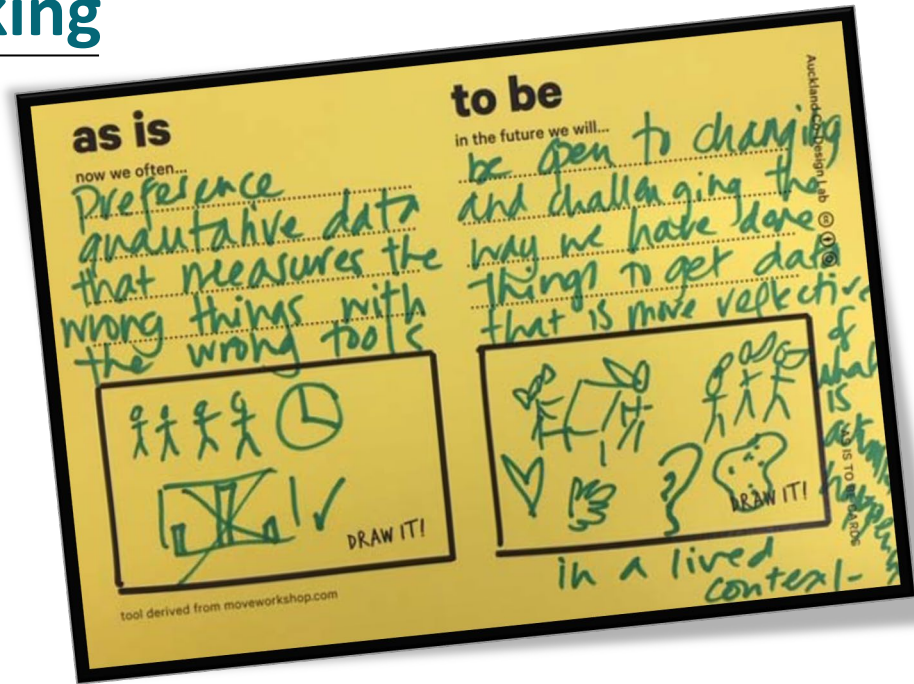 king
as is
now we often...
Preference
quautative data
that measures the
wrong things with
the wrong tools
DRAW IT!
tool derived from moveworkshop.com
to be
in the future we will...
be open to changing
and challenging the
way we have done
things to get data
that is more reflective
of
what
is
actually
happening
in a lived
context-
DRAW IT!
Auckland Co-Design Lab
AS IS TO BE CARDS